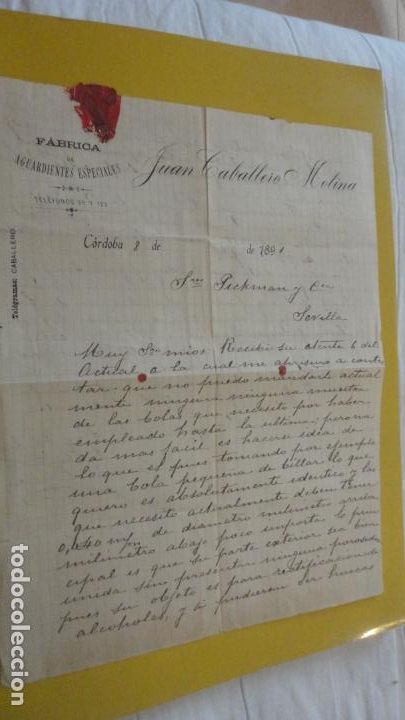 FÁBRICA
DE
AGUARDIENTES ESPECIALES
Juan Caballero Molina
TELÉFONOS
Telégramas: CABALLERO.
Córdoba 8 de de 189
Sres Pickman y Cia
Sevilla
Muy Sres mios: Recibi su atenta 6 del
actual a la cual me apresuro a contes
tar que no puedo mandarle actual
mente ninguna ninguna muestra
de las bolas que necesito por haber
empleado hasta la ultima; pero na
da mas facil es hacerse idea de
lo que es pues tomando por ejemplo
una bola pequeña de billar lo que
quiero es absolutamente identico y las
que necesito actualmente deben tener
0,040 m/m de diametro milimetro arriba
milimetro abajo poco importa lo prin
cipal es que la parte exterior sea bien
unida sin presentar ninguna porosidad
pues su objeto es para rectificacion de
alcoholes, y si pudieran ser huecas
todocoleccion.net